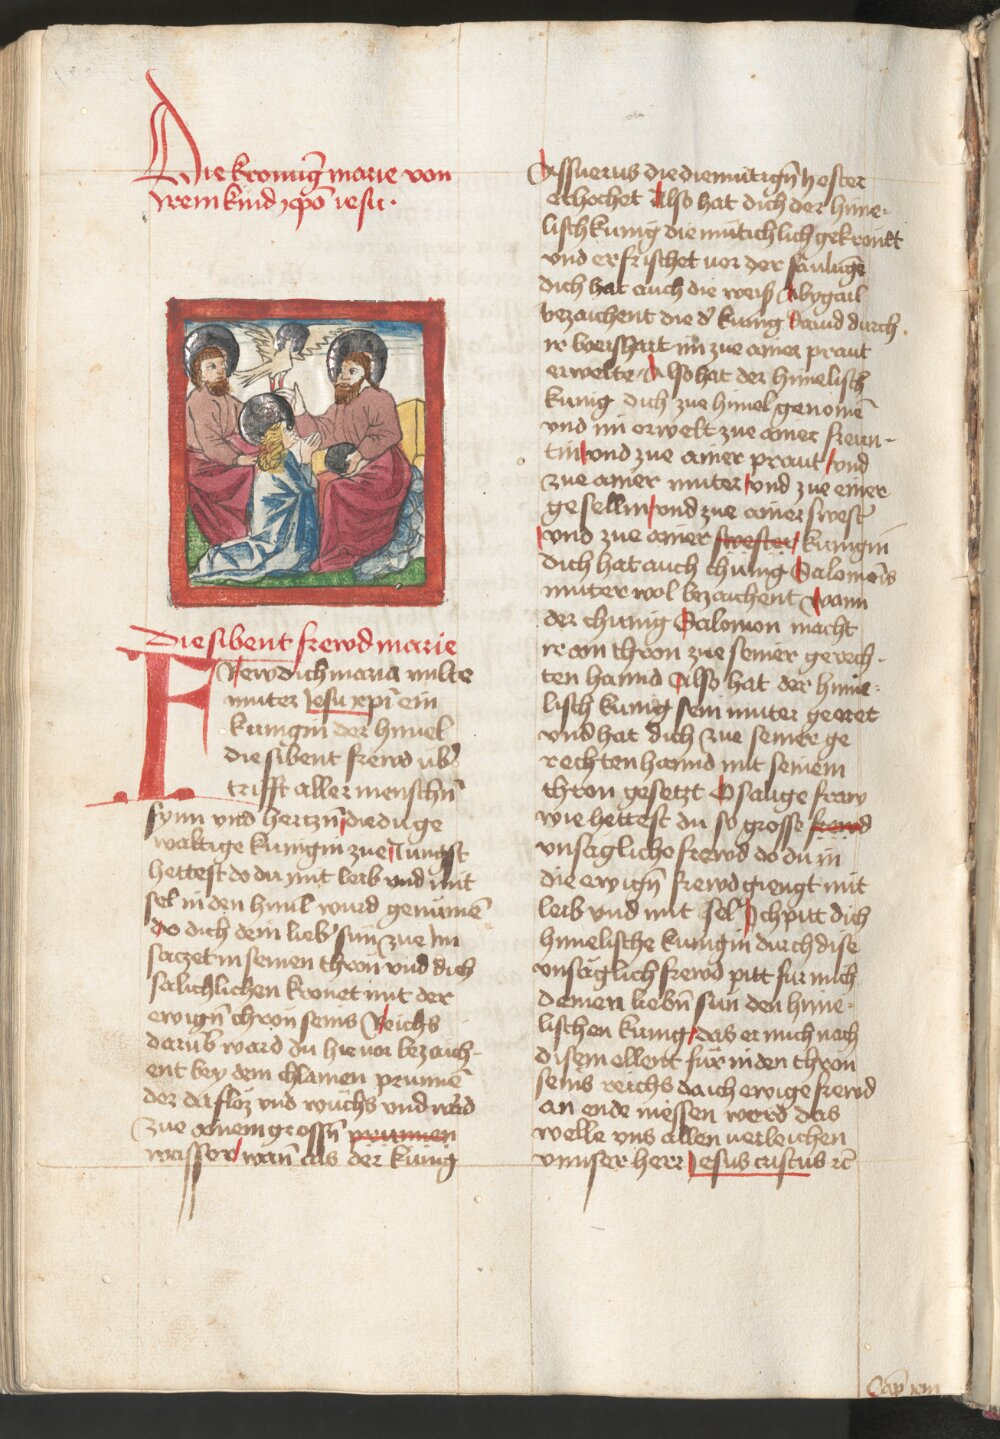 Die kronūg marie von
irem kind xpō iesu ·
Die sibent frewd marie
Frewdich maria milte
muter Jesu xpī ein
kunigin der himel
die sibent frewd ūb̾
trifft aller menschn̄
synn vnd hertzn̄ die du ge
waltige kunigin zue Jungst
hettest do du mit leib vnd mit
sel in den himl wurd genūmē
do dich dein lieb̾ sun zue im
saczet in seinen thron vnd dich
selichlichen kronet mit der
ewign̄ chron seins Reichs
darūb ward du hie vor bezaich-
ent bey dem chlainen prunnē
der da floz vnd wuchs vnd ward
zue ainem grossn̄ prunnen
wasser wan̄ als der kunig
Assuerus die diemutign̄ hester
erhochet Also hat dich der hime-
lisch kunig diemutichlich gekrönt
vnd erfrischet vor der
dich hat auch die weiß Abygail
bezaichent die d̾ kunig Dauid durch
ir weishait im zue ainer praut
erwelte Also hat der himelisch
kunig dich zue himel genomē
vnd im erwelt zue ainer freun-
tin vnd zue ainer praut vnd
zue ainer muter vnd zue einer
gesellin vnd zue ainer swest̾
vnd zue ainer swester kunigin
dich hat auch chunig Salomōis
muter wol bezaichent wann
der chunig Salomon macht
ir ain thron zue seiner gerech-
ten hannd Also hat der hime-
lisch kunig sein muter geeret
vnd hat dich zue seiner ge
rechten hannd mit seinem
thron gesetzt O sälige fraw
wie hettest du so grosse frewd
vnsägliche frewd do du in
die ewign̄ frewd giengt mit
leib vnd mit sel Ich pitt dich
himelische kunigin durch dise
vnsäglich frewd pitt fur mich
deinen liebn̄ sun den hime-
lischen kunig das er mich nach
disem ellent für in den thron
seins reichs da ich ewige frewd
an ende niessen werd das
welle vns allen verleichen
vnnser herr Jesus cristus ꝛc̄